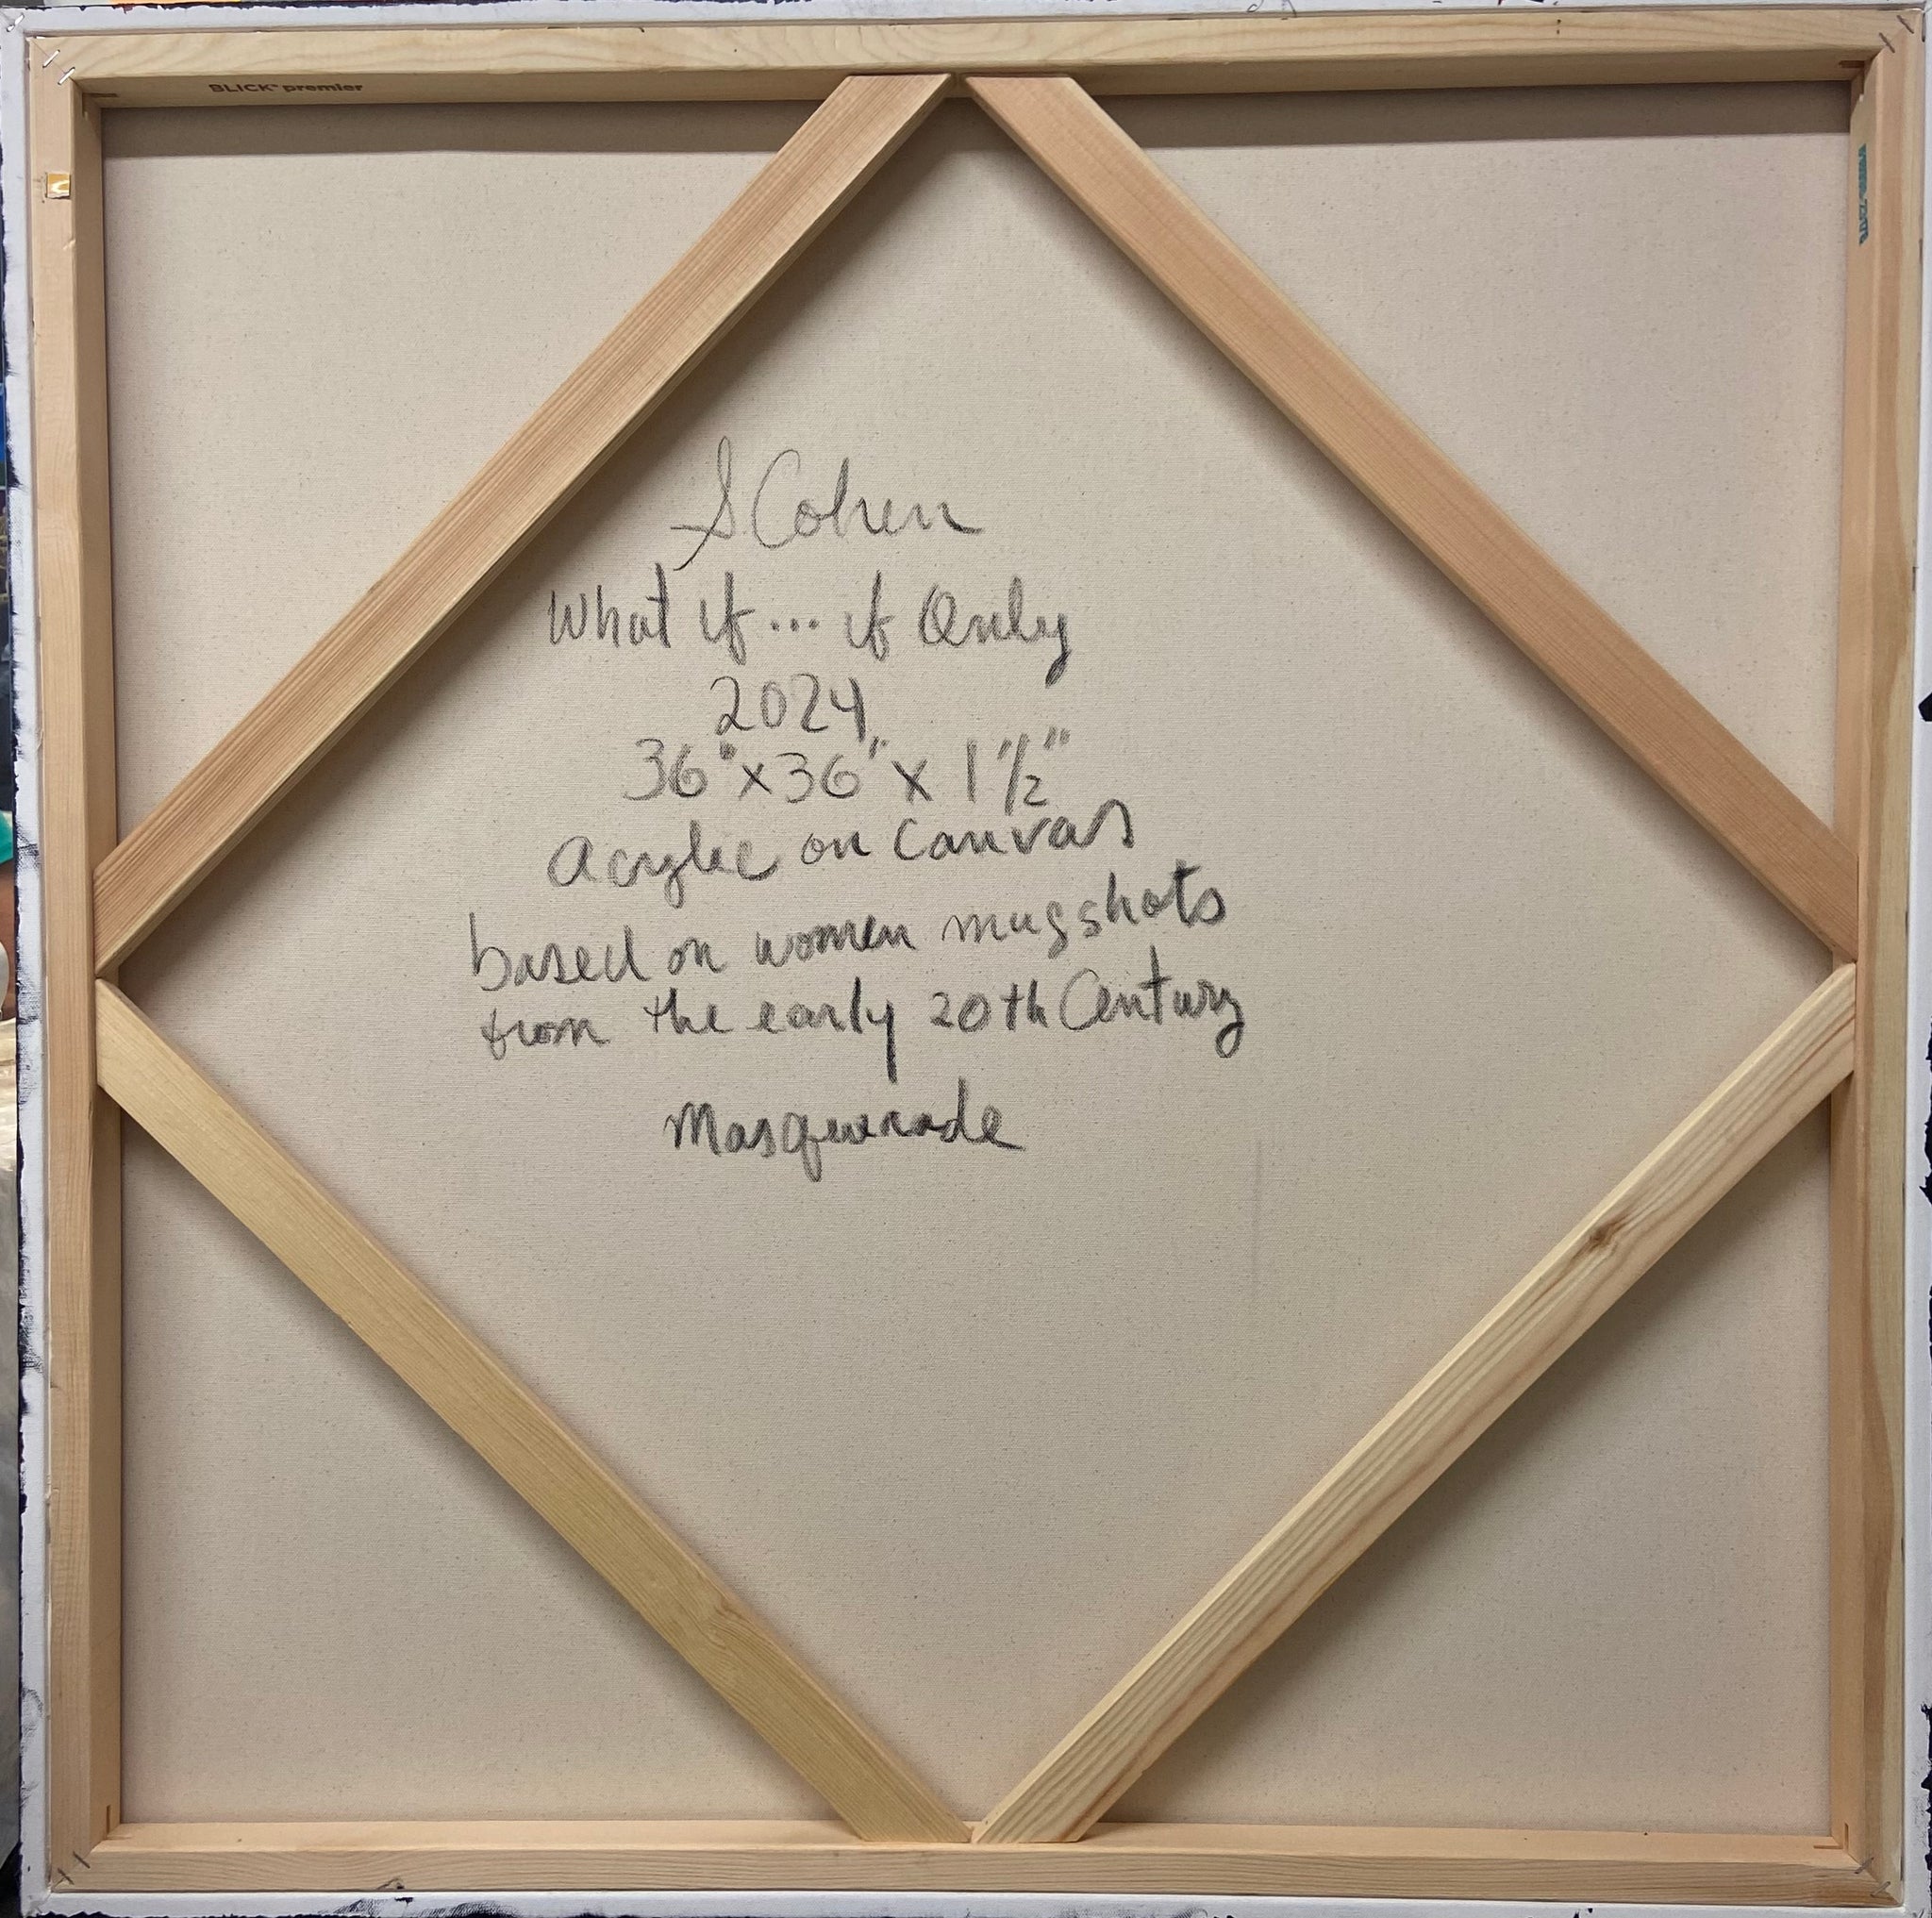 BLICK® premier
S Cohen
What if... if Only
2024
36"x36" x 1 1/2"
Acrylic on Canvas
based on women mugshots
from the early 20th Century
Masquerade